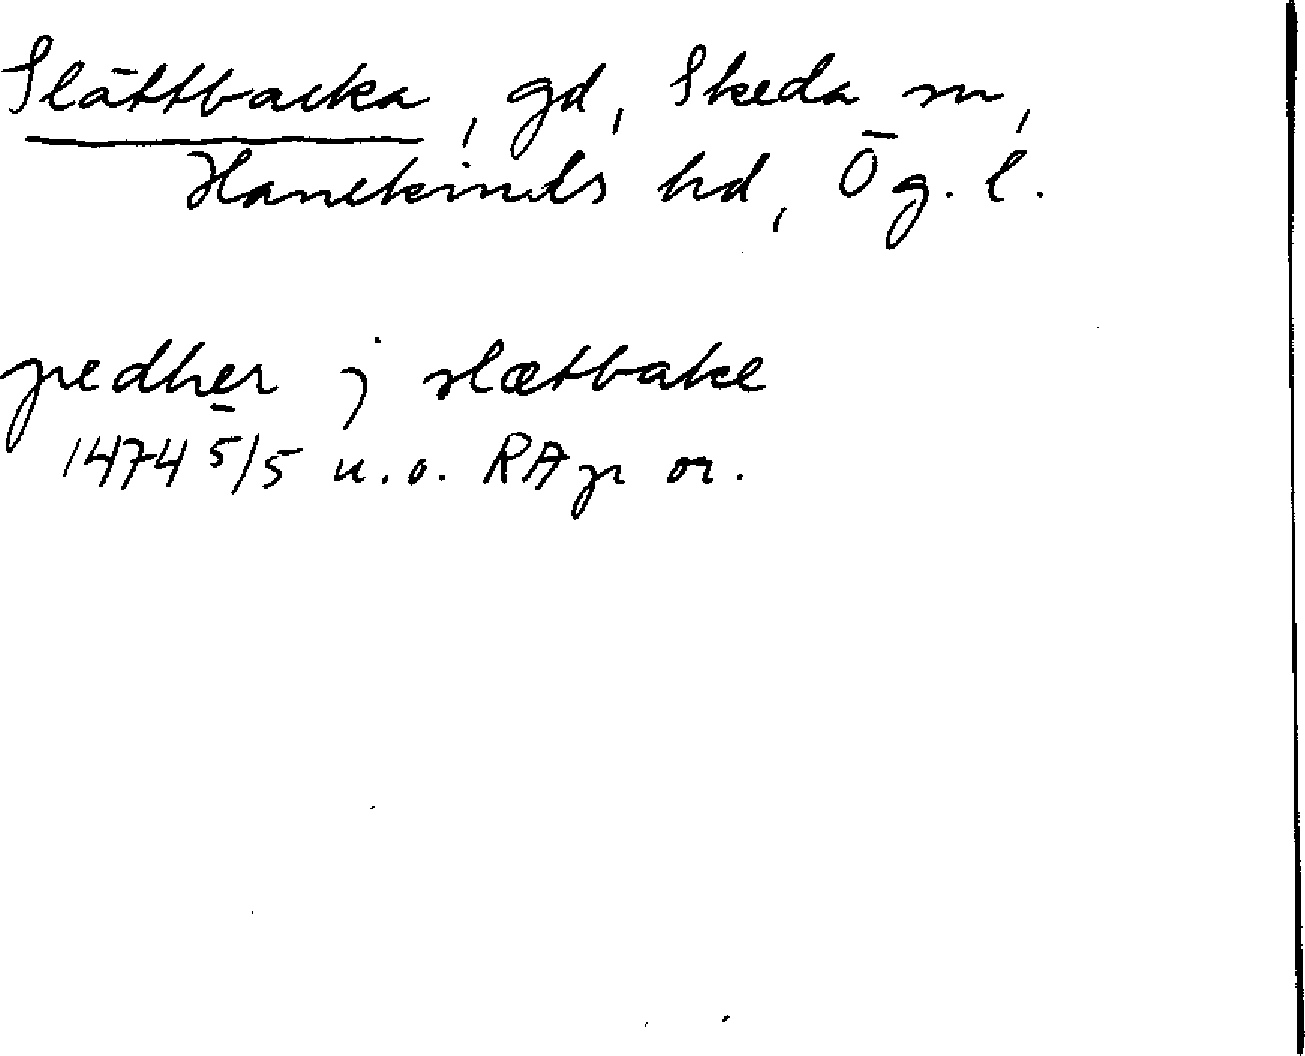 Slättbacka, gd, Skeda sn,
Hanekinds hd, Ög. l.
pedher j slætbake
1474 5/5 u.o. RAp or.